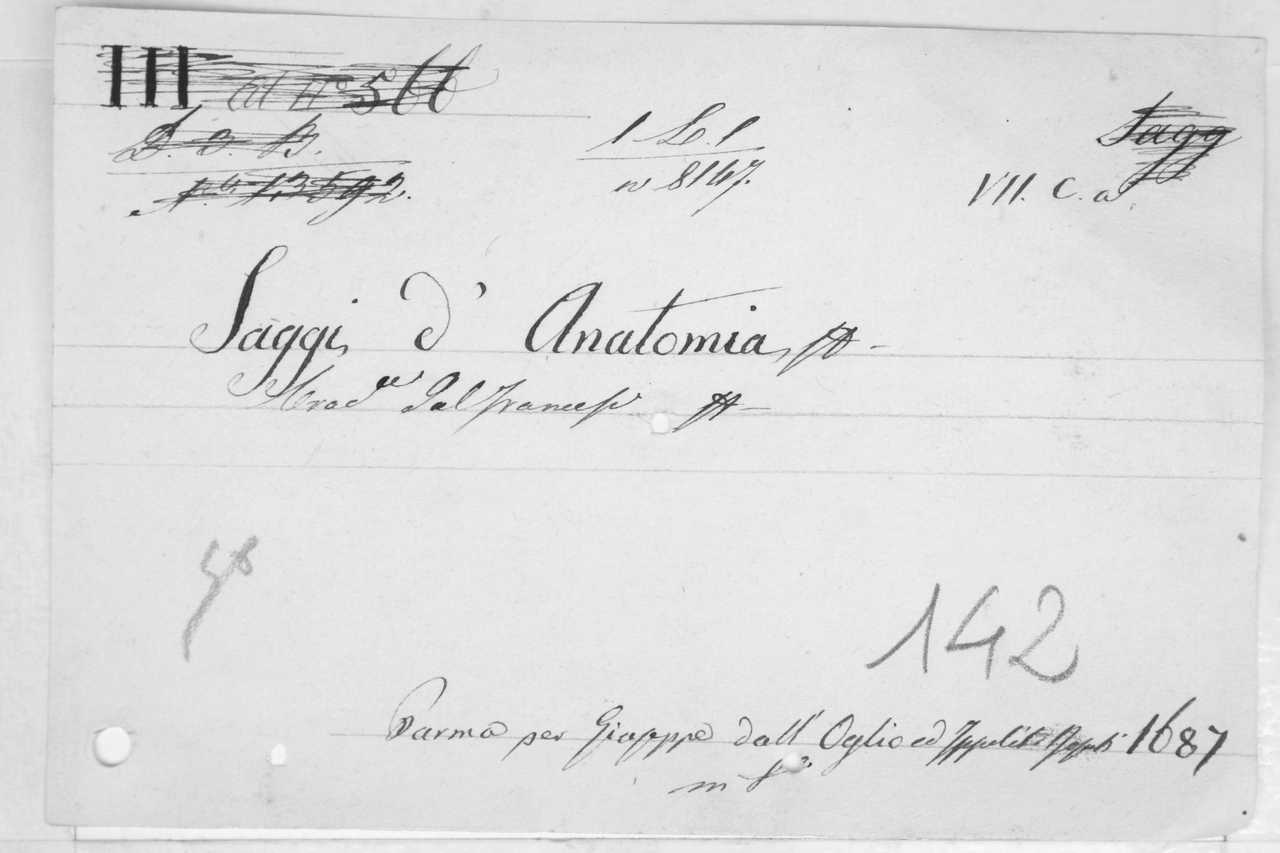 III
D. o. B.
No 13592.
1 L. 1
n 8147.
Sagg
VII. C. a.
Saggi d' Anatomia
Trad.e dal Francese
142
Parma per Giuseppe dall' Oglio ed Ippolito Rosati 1687
in 8°